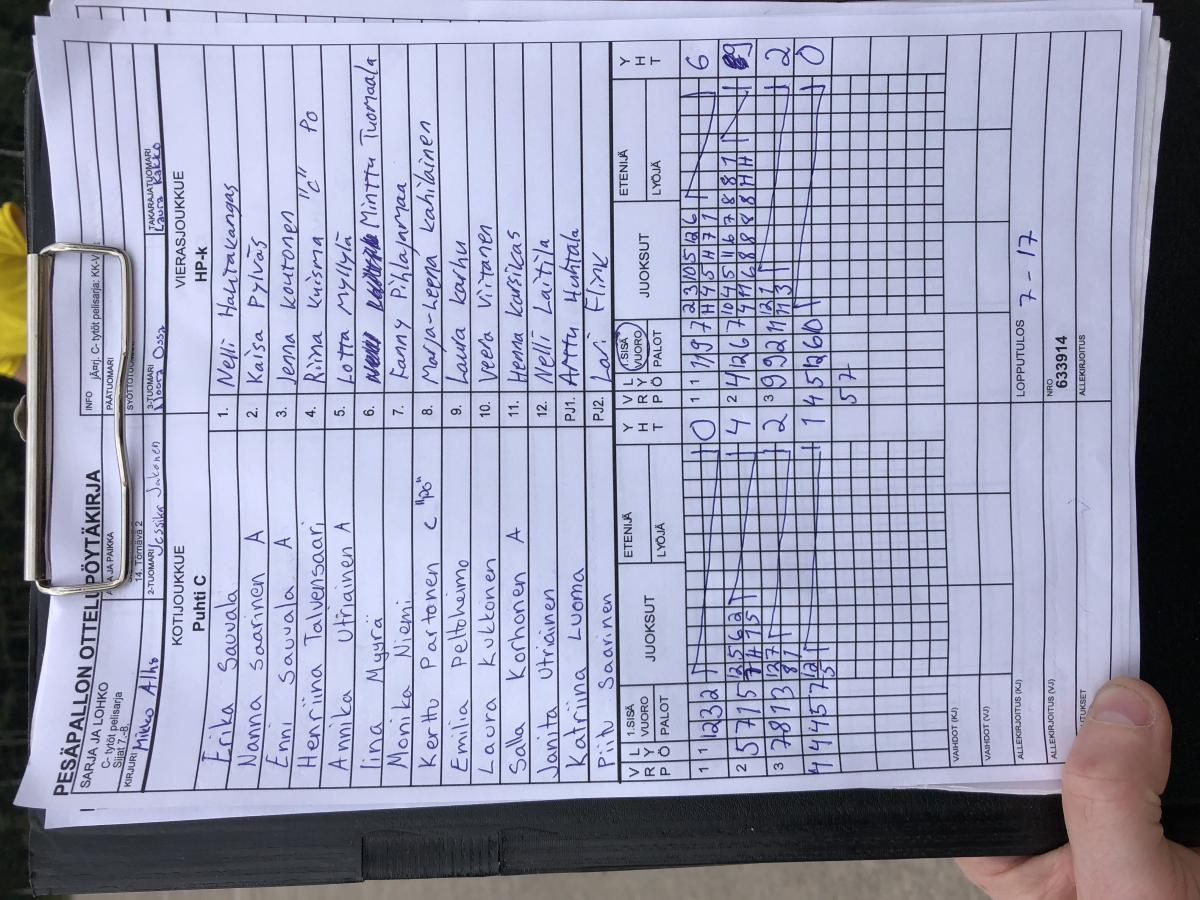 PESÄPALLON OTTELUPÖYTÄKIRJA
SARJA JA LOHKO
C- tytöt pelisarja
Sijat 7.-8.
JA PAIKKA
14. Törnävä 2
INFO
C- tytöt pelisarja: KK-V
PÄÄTUOMARI
KIRJURI Mikko Alho
2-TUOMARI Jessika Jakonen
3-TUOMARI Noora Ossa
TAKARAJATUOMARI Laura Kakko
KOTIJOUKKUE
VIERASJOUKKUE
Puhti C
HP-k
Erika Sauvala 1. Nelli Hautakangas
Nanna Saarinen A 2. Kaisa Pylväs
Enni Sauvala A 3. Jenna Koutonen
Henriina Talvensaari 4. Riina Kuisma "C" Po
Annika Utriainen A 5. Lotta Myllylä
Iina Myyrä 6. Minttu Tuomaala
Monika Niemi 7. Fanny Pihlajamaa
Kerttu Partonen C "po" 8. Marja-Leena Kahilainen
Emilia Peltoheimo 9. Lauda Karhu
Laura Kukkonen 10. Veela Viitanen
Salla Korhonen A 11. Henna Karsikas
Janita Utriainen 12. Nelli Laitila
Katriina Luoma PJ1. Arttu Huhtala
Piitu Saarinen PJ2. Lari Fink
V R P L Y Ö 1.SISÄ VUORO PALOT JUOKSUT ETENIJÄ LYÖJÄ Y H T V R P L Y Ö 1.SISÄ VUORO PALOT JUOKSUT ETENIJÄ LYÖJÄ Y H T
1 1 2 3 2 0 1 1 11 9 7 2 3 10 5 12 6 6
H 4 5 H 7 1
2 5 7 1 5 12 5 6 2 4 2 4 12 6 7
7 H 7 5
3 7 8 1 3 12 7 2 3 9 9 2 11 12 1 2
8 1 11 3
4 4 4 5 7 12 1 4 5 12 6 10 0
5 5 7
VAIHDOT (KJ)
VAIHDOT (VJ)
ALLEKIRJOITUS (KJ)
LOPPUTULOS 7 - 17
ALLEKIRJOITUS (VJ)
NRO
633914
ALLEKIRJOITUS